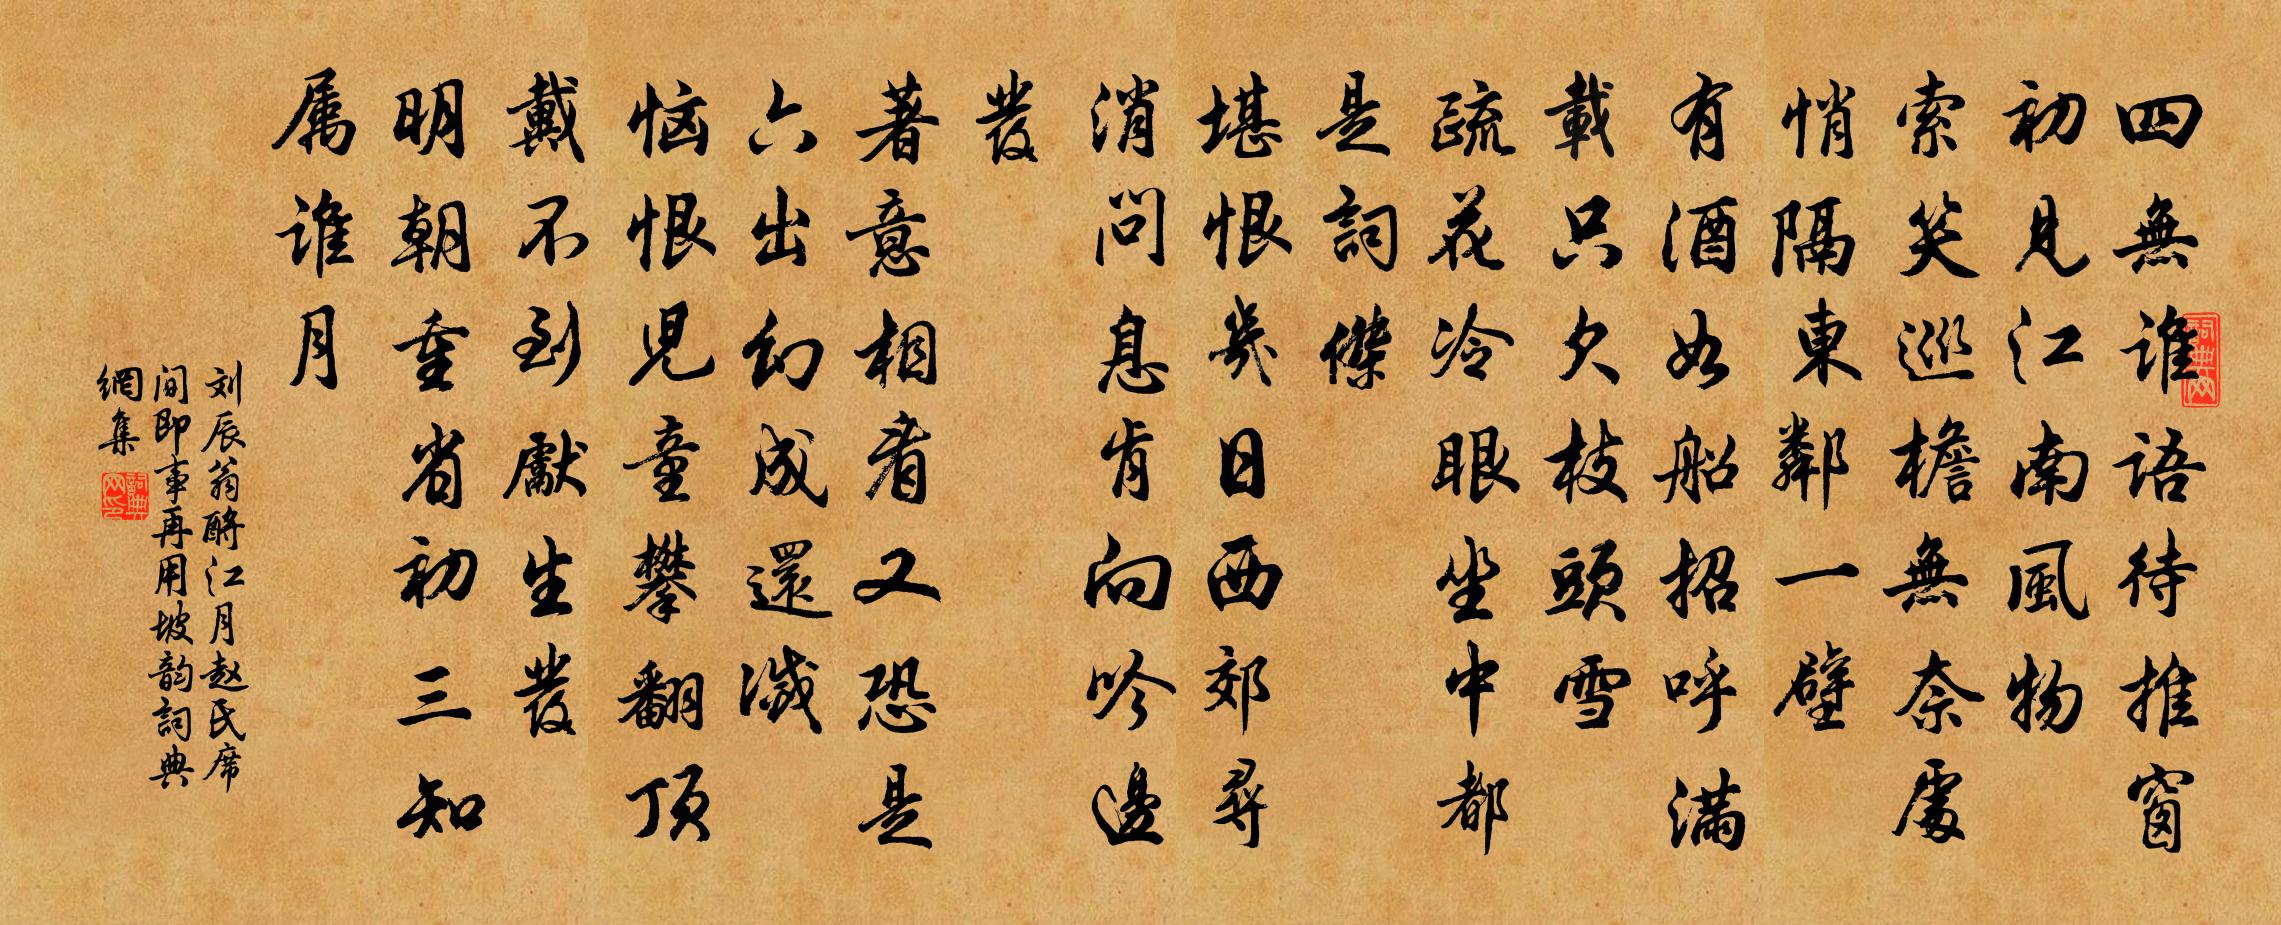 四無谁语待推窗
初見江南風物
索笑巡檐無奈處
悄隔東鄰一壁
有酒如船招呼满
載只欠枝頭雪
疏花冷眼坐中都
是詞傑
堪恨幾日西郊尋
消問息肯向吟邊
發
著意相看又恐是
六出幻成還滅
恼恨児童攀翻顶
戴不到獻生發
明朝重省初三知
属谁月
刘辰翁酹江月赵氏席
间即事再用坡韵詞典
網集
詞典网
詞典网印